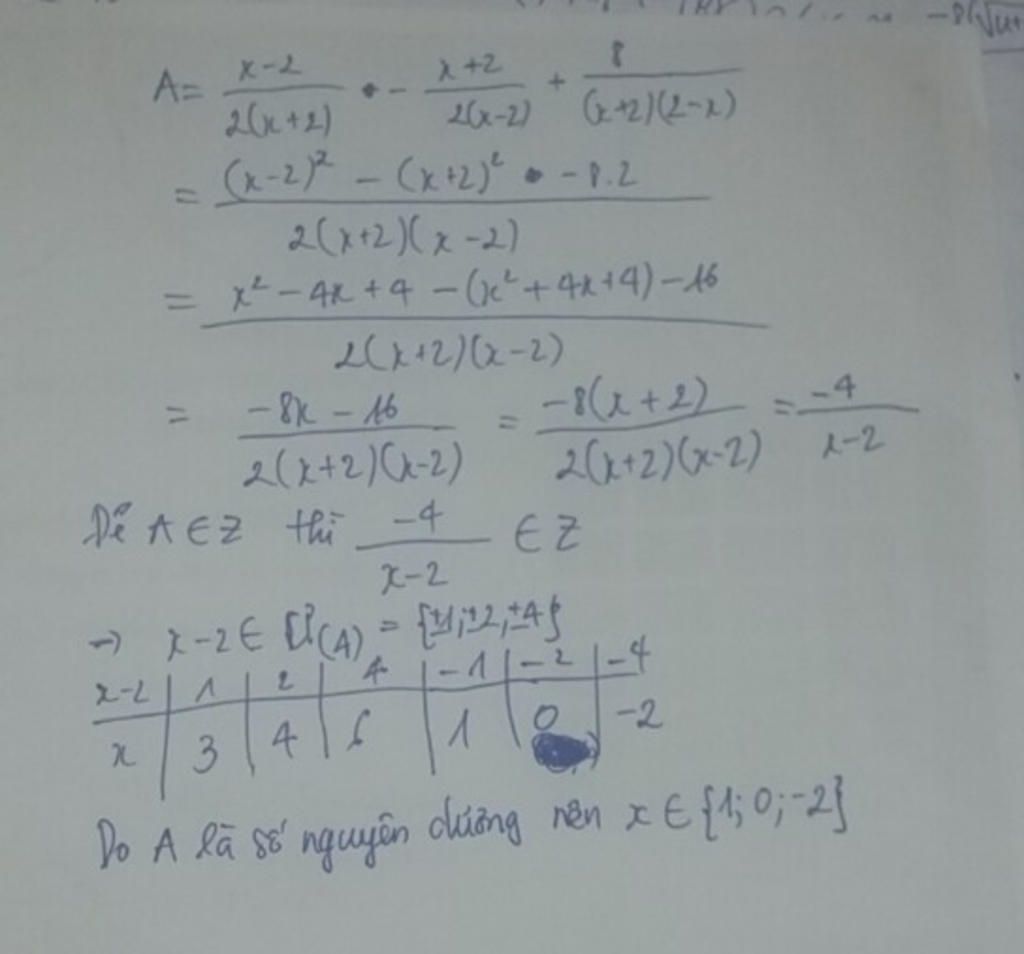 -8(√
A = \frac{x-2}{2(x+2)} - \frac{x+2}{2(x-2)} + \frac{8}{(x+2)(2-x)}
= \frac{(x-2)² - (x+2)² - 8.2}{2(x+2)(x-2)}
= \frac{x² - 4x + 4 - (x² + 4x + 4) - 16}{2(x+2)(x-2)}
= \frac{-8x - 16}{2(x+2)(x-2)} = \frac{-8(x+2)}{2(x+2)(x-2)} = \frac{-4}{x-2}
Để A ∈ Z thì \frac{-4}{x-2} ∈ Z
→ x-2 ∈ Ư(4) = {±1; ±2; ±4}
x-2 | 1 | 2 | 4 | -1 | -2 | -4
x | 3 | 4 | 6 | 1 | 0 | -2
Do A là số nguyên dương nên x ∈ {1; 0; -2}